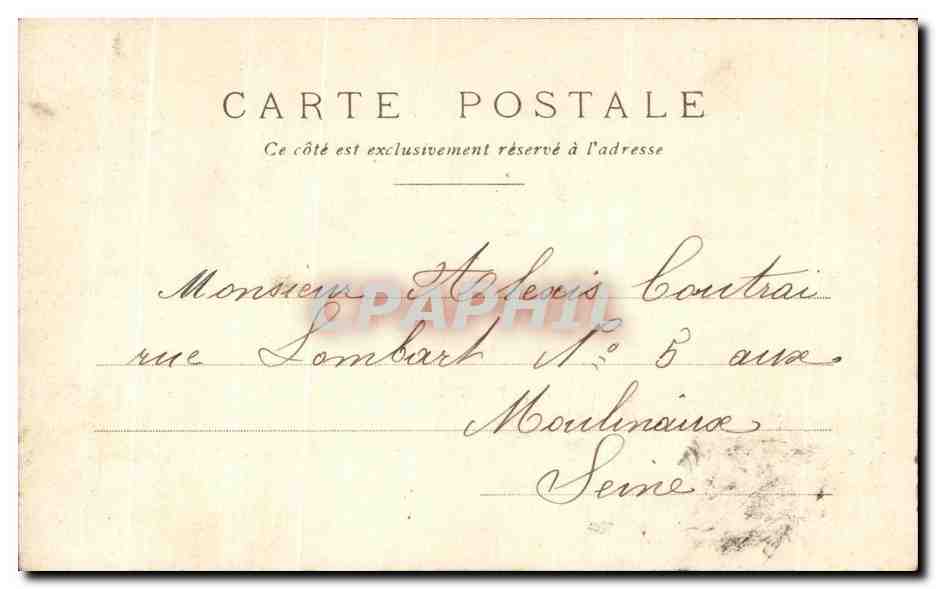 CARTE POSTALE
Ce côté est exclusivement réservé à l'adresse
Monsieur Alexis Coutrai
rue Lombart No 5 aux
Moulinaux
Seine
CPAPHIL